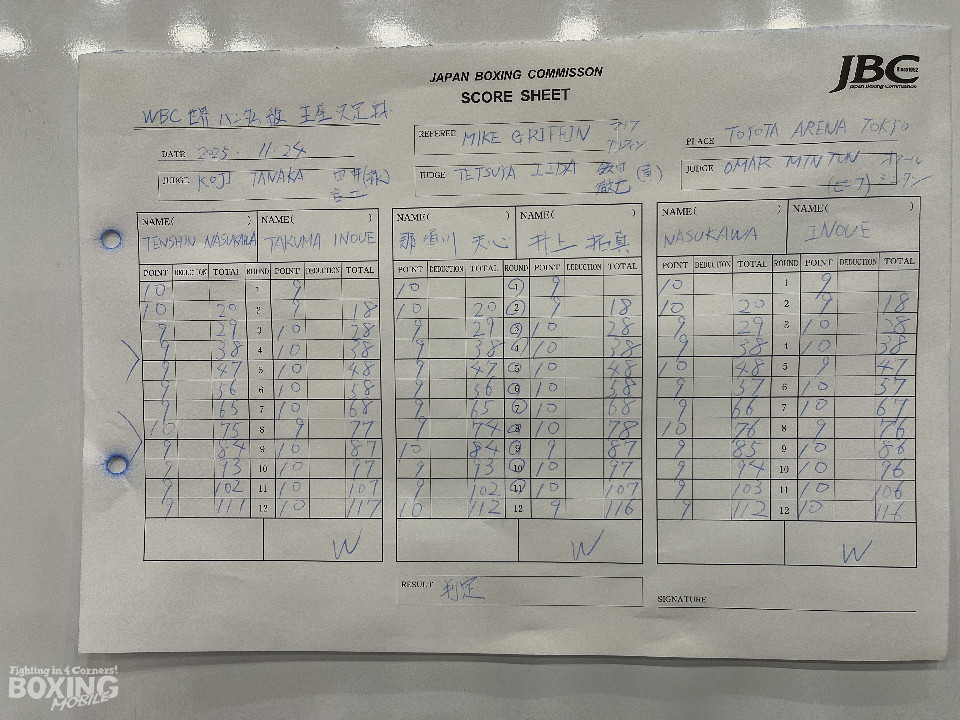 JAPAN BOXING COMMISSON
SCORE SHEET
JBC
Since 1952
Japan Boxing Commission
WBC世界バンタム級 王座決定戦
DATE 2025. 11.24
REFEREE MIKE GRIFFIN
PLACE TOYOTA ARENA TOKYO
JUDGE KOJI TANAKA
JUDGE TETSUYA IIDA
JUDGE OMAR MINTUN
NAME( ) NAME( ) NAME( ) NAME( ) NAME( ) NAME( )
TENSHIN NASUKAWA TAKUMA INOUE 那須川 天心 井上 拓真 NASUKAWA INOUE
POINT DEDUCTION TOTAL ROUND POINT DEDUCTION TOTAL POINT DEDUCTION TOTAL ROUND POINT DEDUCTION TOTAL POINT DEDUCTION TOTAL ROUND POINT DEDUCTION TOTAL
10 1 9 10 1 9 10 1 9
10 20 2 9 18 10 20 2 9 18 10 20 2 9 18
9 29 3 10 28 9 29 3 10 28 9 29 3 10 28
9 38 4 10 38 9 38 4 10 38 9 38 4 10 38
9 47 5 10 48 9 47 5 10 48 10 48 5 9 47
9 56 6 10 58 9 56 6 10 58 9 57 6 10 57
9 65 7 10 68 9 65 7 10 68 9 66 7 10 67
10 75 8 9 77 9 74 8 10 78 10 76 8 9 76
9 84 9 10 87 10 84 9 9 87 9 85 9 10 86
9 93 10 10 97 9 93 10 10 97 9 94 10 10 96
9 102 11 10 107 9 102 11 10 107 9 103 11 10 106
9 111 12 10 117 10 112 12 9 116 9 112 12 10 116
W W W
RESULT 判定
SIGNATURE
Fighting in 4 Corners!
BOXING
MOBILE